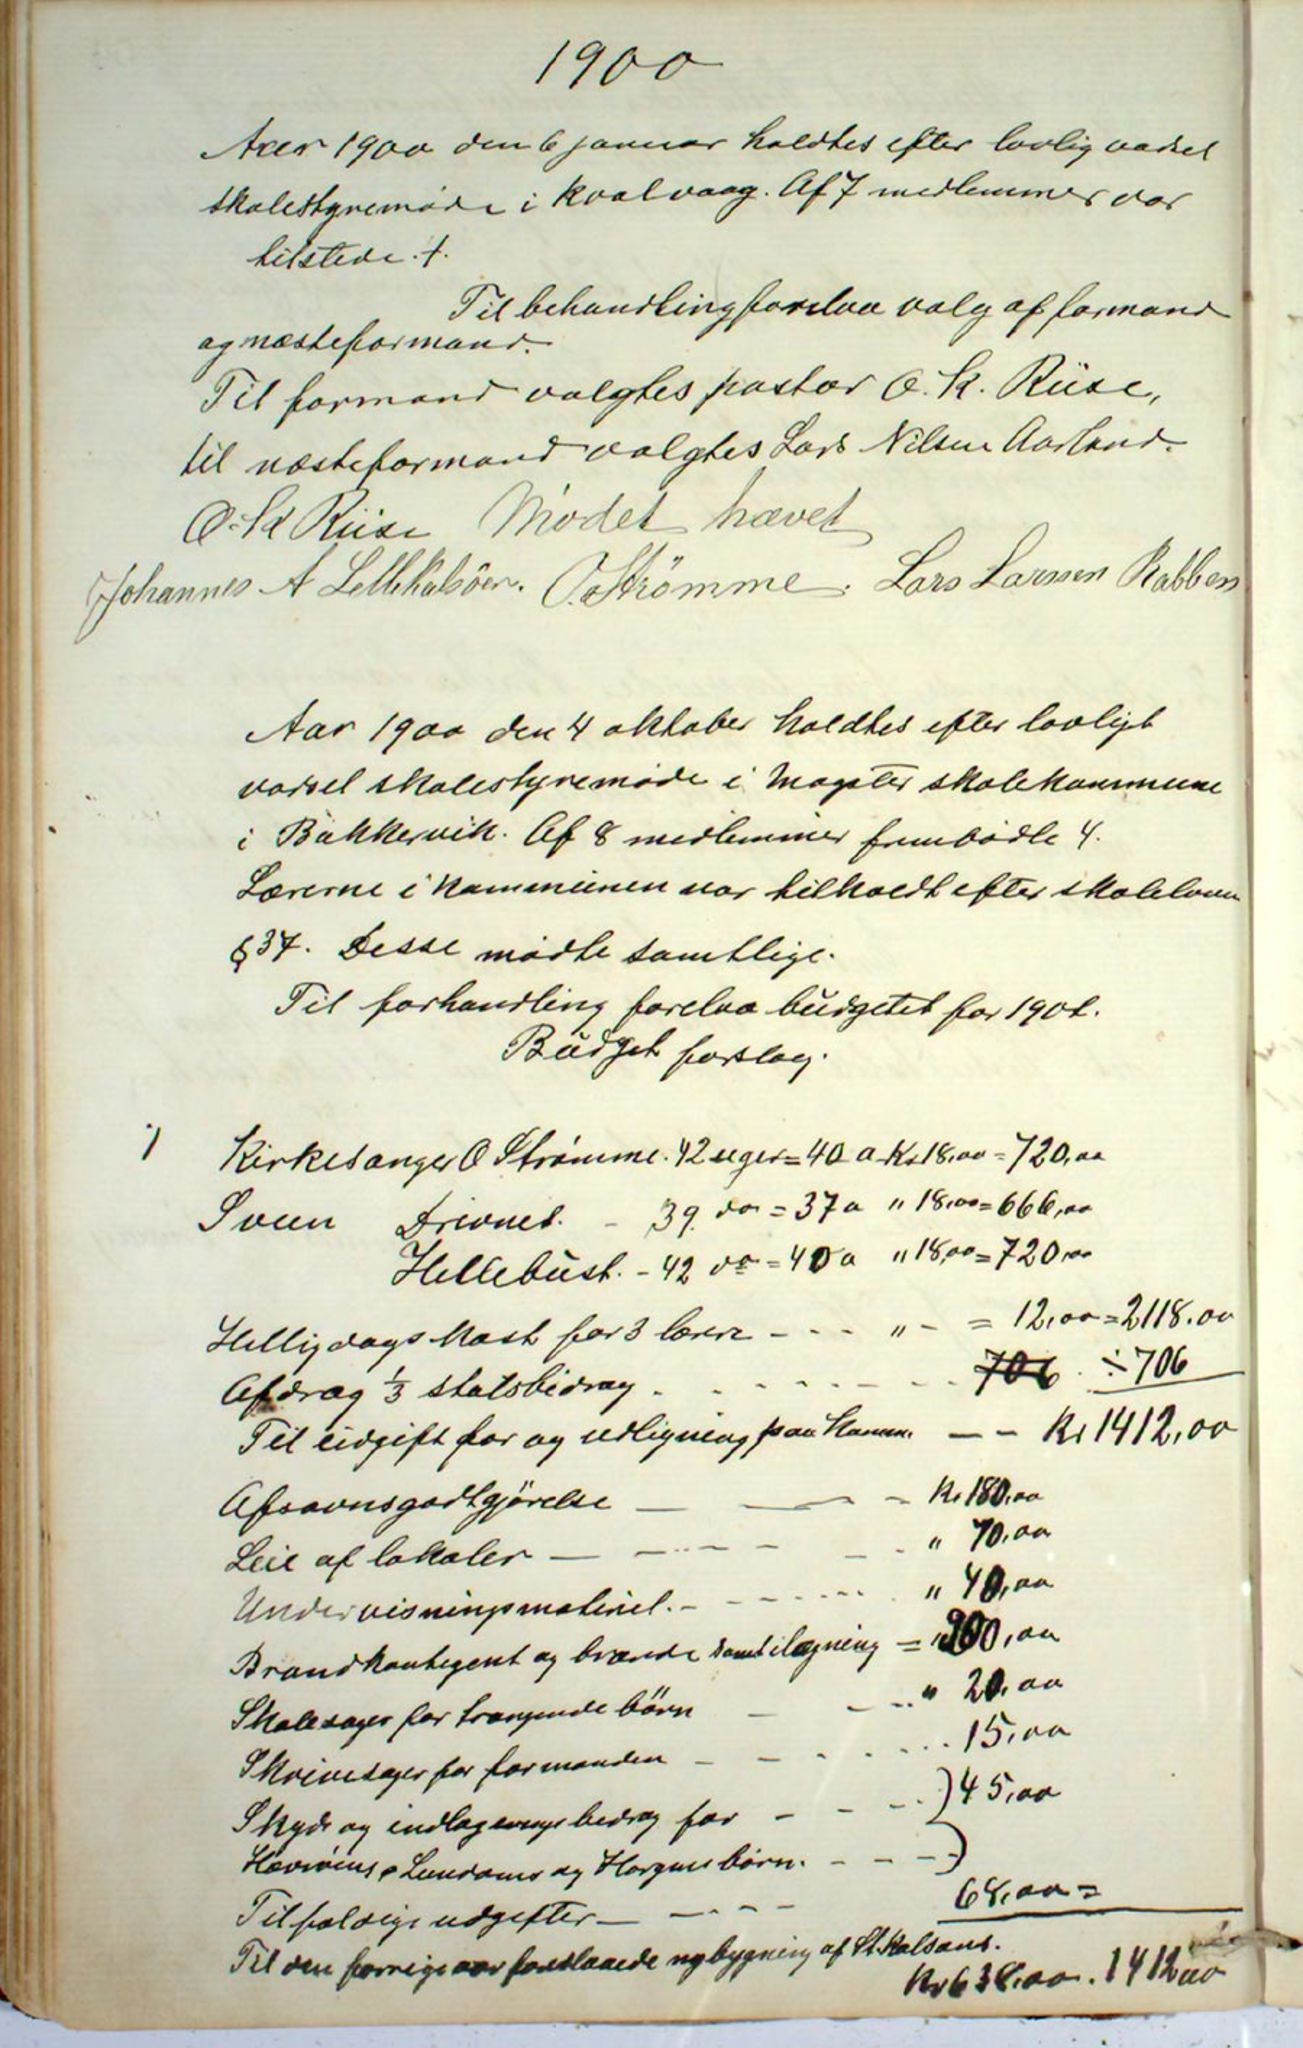 1900
Aar 1900 den 6 januar holdtes efter lovlig varsel
skolestyremøde i Kvalvaag. Af 7 medlemmer var
tilstede 4.
Til behandling forelaa valg af formand
og næsteformand.
Til formand valgtes pastor O. K. Riise,
til næsteformand valgtes Lars Nilsen Aarland.
O. K Riise Mødet hævet
Johannes A Lillekalsöen. O. Strømme. Lars Larssen Rabben
Aar 1900 den 4 oktober holdtes efter lovligt
varsel skolestyremøde i Møgster skolekommune
i Bakkervik. Af 8 medlemmer frembødte 4.
Lærerne i kommunen var tilkaldt efter skoleloven
§ 37. Desse mødte samtlige.
Til forhandling forelaa budgetet for 1901.
Budget forslag.
1 Kirkesanger O Strømme. 42 uger = 40 a Kr 18,00 = 720,00
Sveen Drivnes. - 39 do = 37 a " 18,00 = 666,00
Hellebust. - 42 do = 40 a " 18,00 = 720,00
Helligdags kost for 3 lærere - - - " - = 12,00 = 2118.00
Afdrag 1/3 statsbidrag . - - - - - 706 . ÷ 706
Til udgift for og udligning paa Komm. — - Kr 1412,00
Afsavnsgodtgjörelse — — - - Kr 180,00
Leie af lokaler — - - - - - " 70,00
Undervisningsmateriel. - - - - - " 40,00
Brandkontigent og brænde samt ilægning = " 200,00
Skolesager for trængende börn - - - " 20,00
Skrivesager for formanden - - - - - 15,00
Skyds og indlogerings bedrag for - - - ) 45,00
Lundams og Horgens börn. - - - )
Tilfældige udgifter — - - - 68,00 =
Til den forrige aar foreslaaede nybygning af St. Kalsøens.
Kr 638,00. 1412 00